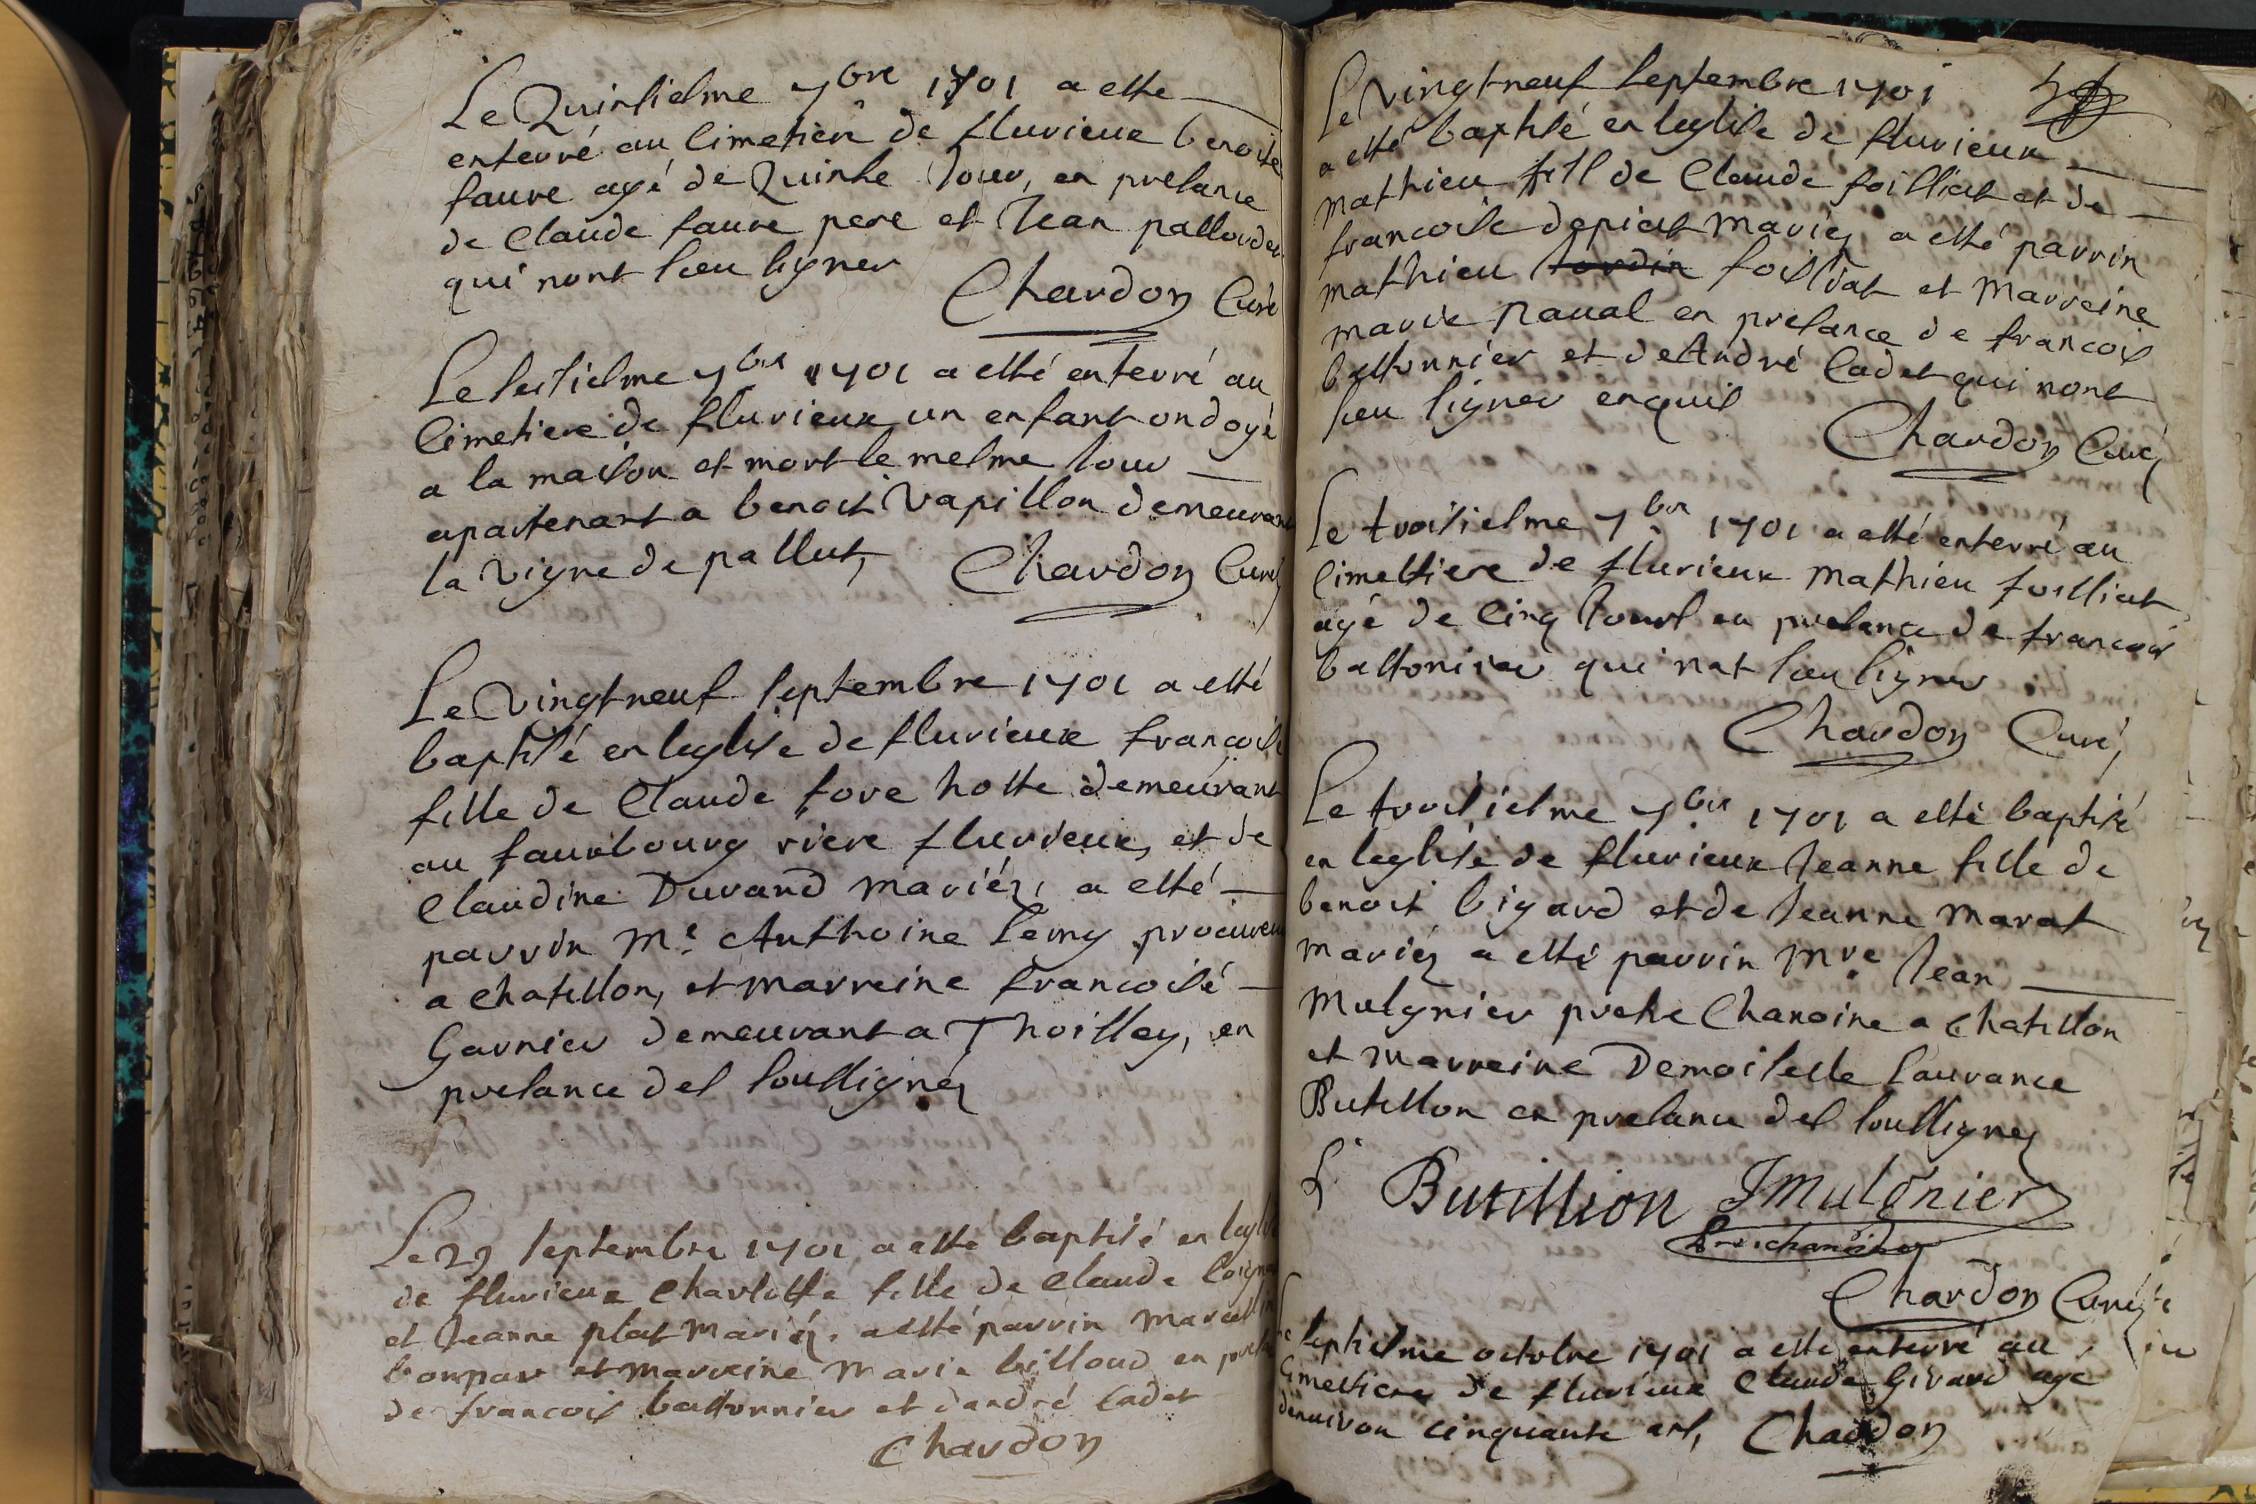 Le Quinsiesme 7bre 1701 a esté
enterré au Cimetiere de fluvieux benoite
faure agé de Quinse Jour, en presance
de Claude faure pere et Jean pallordet
qui nont sceu signer
Chardon Curé
Le sesiesme 7bre 1701 a esté enterré au
Cimetiere de fluvieux un enfant ondoyé
a la maison et mort le mesme Jour
apartenant a benoit Vapillon demeurant
la vigne de pallut, Chardon Curé
Le Vingtneuf septembre 1701 a esté
baptisé en leglise de fluvieux francoise
fille de Claude fore hoste demeurant
au fauxbourg riere fluvieux, et de
Claudine Durand mariéz, a esté
parrin Me Anthoine Semy procureur
a chatillon, et marreine francoise
Garnier demeurant a Thoissey, en
presance des soussignéz
Le 29 septembre 1701 a esté baptisé en leglise
de fluvieux Charlotte fille de Claude
et Jeanne plat mariéz. a esté parrin
bonpar et marreine Marie billoud en
de francois bastonnier et dandré Cadet
Chardon
Le Vingtneuf septembre 1701
a esté baptisé en leglise de fluvieux
mathieu fils de Claude foilliat et de
francoise depiat mariéz a esté parrin
mathieu foilliat et marreine
marie Raual en presance de francois
bastonnier et de André Cadet qui nont
sceu signer enquis
Chardon Curé
Le troisiesme 7bre 1701 a esté enterré au
Cimestiere de fluvieux mathieu foilliat
agé de Cinq Jours en presance de francois
bastonier qui nat sceu signer
Chardon Curé
Le troisiesme 7bre 1701 a esté baptisé
en leglise de fluvieux Jeanne fille de
benoit bigard et de Jeanne Marat
mariéz a esté parrin Mre Jean
Mulgnier prestre Chanoine a Chatillon
et Marreine Demoiselle Laurance
Butillon en presance des soussignez
L Butillion JMulgnier
Chardon Curé
septiesme octobre 1701 a esté enterré au
Cimestiere de fluvieux Claude Girard age
denuiron cinquante ans, Chardon